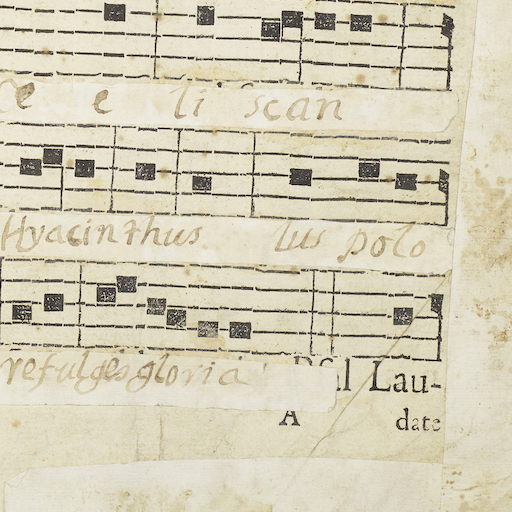 Ce e li scan
Hyacinthus lus polo
refulges gloria Psal Lau-
A date